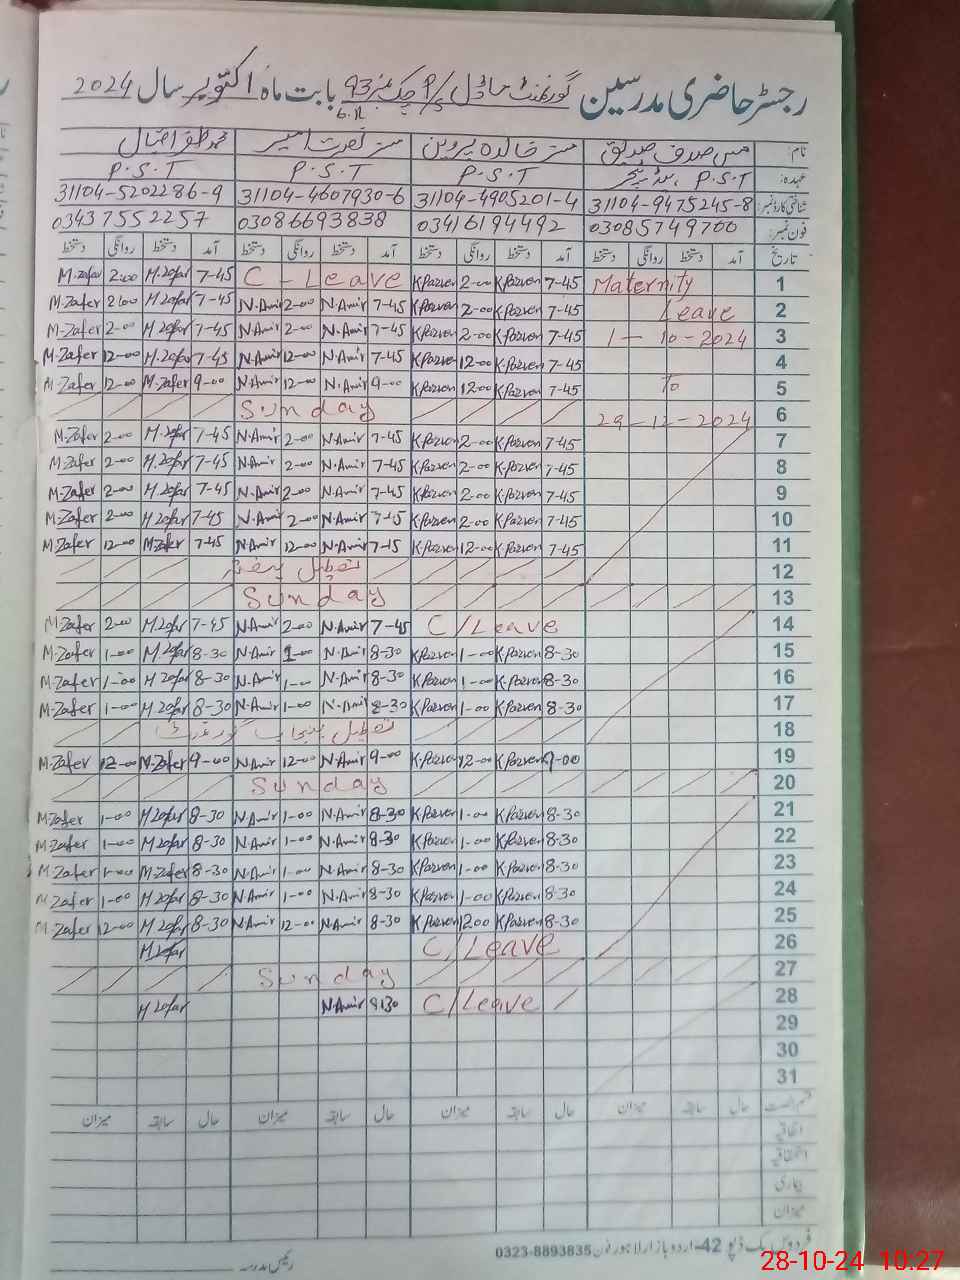 رجسٹر حاضری مدرسین گورنمنٹ ماڈل P/S چک نمبر 93 6.R بابت ماہ اکتوبر سال 2024
نام: مس صدف صدیق مسز خالدہ پروین مسز نصرت امیر محمد ظفر اقبال
عہدہ: P.S.T ہیڈ ٹیچر P.S.T P.S.T P.S.T
شناختی کارڈ نمبر: 31104-9475245-8 31104-4905201-4 31104-4607930-6 31104-5202286-9
فون نمبر: 03085749700 03416194492 03086693838 03437552257
تاریخ آمد دستخط روانگی دستخط آمد دستخط روانگی دستخط آمد دستخط روانگی دستخط آمد دستخط روانگی دستخط
M.zafar 2:00 M.zafar 7-45 C-Leave K.Parven 2-00 K.Parven 7-45 Maternity 1
M.Zafer 2:00 M.zafar 7-45 N.Amir 2-00 N.Amir 7-45 K.Parven 2-00 K.Parven 7-45 Leave 2
M.Zafer 2-00 M.zafar 7-45 N.Amir 2-00 N.Amir 7-45 K.Parven 2-00 K.Parven 7-45 1-10-2024 3
M.Zafer 12-00 M.zafar 7-45 N.Amir 12-00 N.Amir 7-45 K.Parven 12-00 K.Parven 7-45 4
M.Zafer 12-00 M.Zafer 9-00 N.Amir 12-00 N.Amir 9-00 K.Parven 12-00 K.Parven 7-45 To 5
Sunday 29-12-2024 6
M.Zafer 2-00 M.zafar 7-45 N.Amir 2-00 N.Amir 7-45 K.Parven 2-00 K.Parven 7-45 7
M.Zafer 2-00 M.zafar 7-45 N.Amir 2-00 N.Amir 7-45 K.Parven 2-00 K.Parven 7-45 8
M.Zafer 2-00 M.zafar 7-45 N.Amir 2-00 N.Amir 7-45 K.Parven 2-00 K.Parven 7-45 9
M.Zafer 2-00 M.zafar 7-45 N.Amir 2-00 N.Amir 7-45 K.Parven 2-00 K.Parven 7-45 10
M.Zafer 12-00 M.Zafer 7-45 N.Amir 12-00 N.Amir 7-45 K.Parven 12-00 K.Parven 7-45 11
تعطیل 12
Sunday 13
M.Zafer 2-00 M.zafar 7-45 N.Amir 2-00 N.Amir 7-45 C/Leave 14
M.Zafer 1-00 M.zafar 8-30 N.Amir 1-00 N.Amir 8-30 K.Parven 1-00 K.Parven 8-30 15
M.Zafer 1-00 M.zafar 8-30 N.Amir 1-00 N.Amir 8-30 K.Parven 1-00 K.Parven 8-30 16
M.Zafer 1-00 M.zafar 8-30 N.Amir 1-00 N.Amir 8-30 K.Parven 1-00 K.Parven 8-30 17
تعطیل پنجاب گورنمنٹ 18
M.Zafer 12-00 M.Zafer 9-00 N.Amir 12-00 N.Amir 9-00 K.Parven 12-00 K.Parven 9-00 19
Sunday 20
M.Zafer 1-00 M.zafar 8-30 N.Amir 1-00 N.Amir 8-30 K.Parven 1-00 K.Parven 8-30 21
M.Zafer 1-00 M.zafar 8-30 N.Amir 1-00 N.Amir 8-30 K.Parven 1-00 K.Parven 8-30 22
M.Zafer 1-00 M.Zafer 8-30 N.Amir 1-00 N.Amir 8-30 K.Parven 1-00 K.Parven 8-30 23
M.Zafer 1-00 M.zafar 8-30 N.Amir 1-00 N.Amir 8-30 K.Parven 1-00 K.Parven 8-30 24
M.Zafer 12-00 M.zafar 8-30 N.Amir 12-00 N.Amir 8-30 K.Parven 1200 K.Parven 8-30 25
M.zafar C/Leave 26
Sunday 27
M.zafar N.Amir 8:30 C/Leave 28
29
30
31
حال سابقہ میزان حال سابقہ میزان حال سابقہ میزان حال سابقہ میزان
اتفاقیہ
استحقاقیہ
بیماری
میزان
فردوس بک ڈپو 42-اردو بازار لاہور فون 0323-8893835
رئیس مدرسہ
28-10-24 10:27